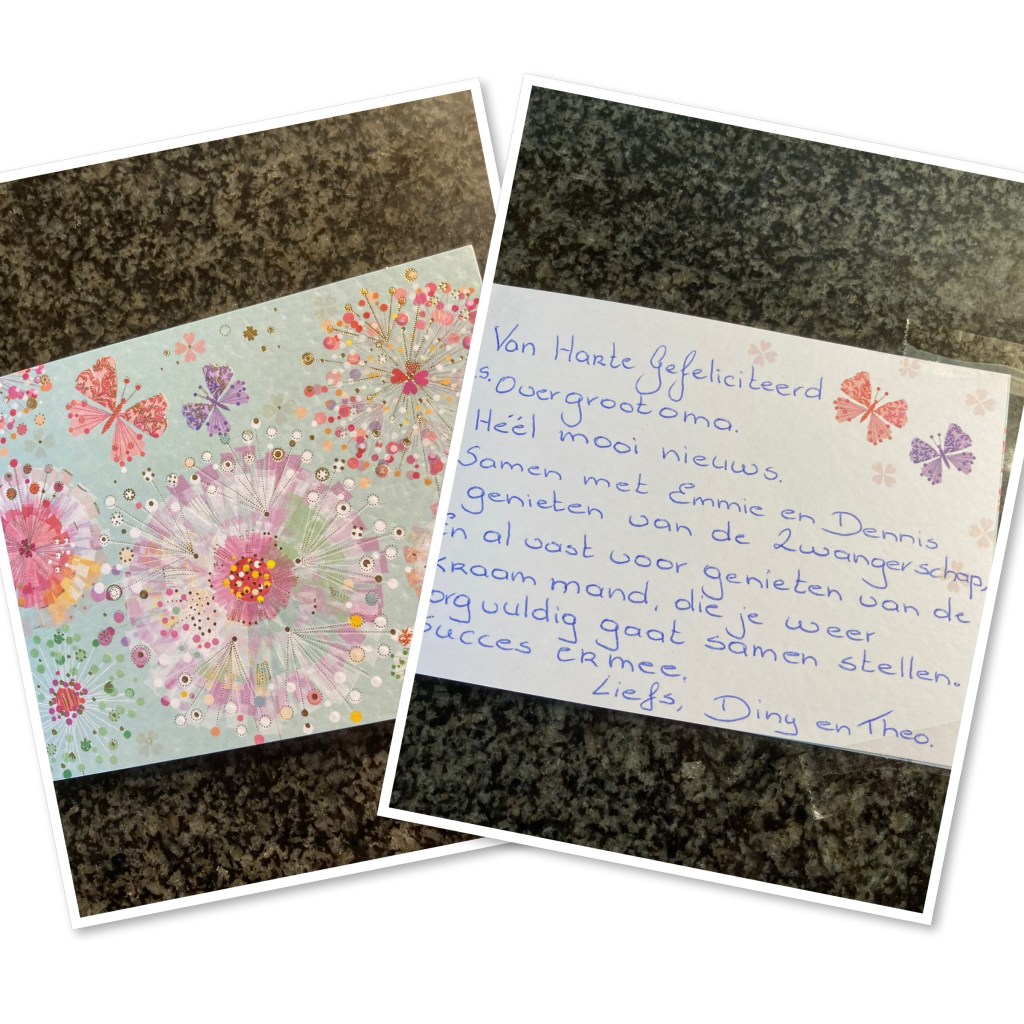 Van Harte Gefeliciteerd
s. Overgrootoma.
Héél mooi nieuws.
Samen met Emmie en Dennis
genieten van de Zwangerschap,
En al vast voor genieten van de
kraam mand, die je weer
orgvuldig gaat samen stellen.
Succes ermee.
Liefs, Diny en Theo.